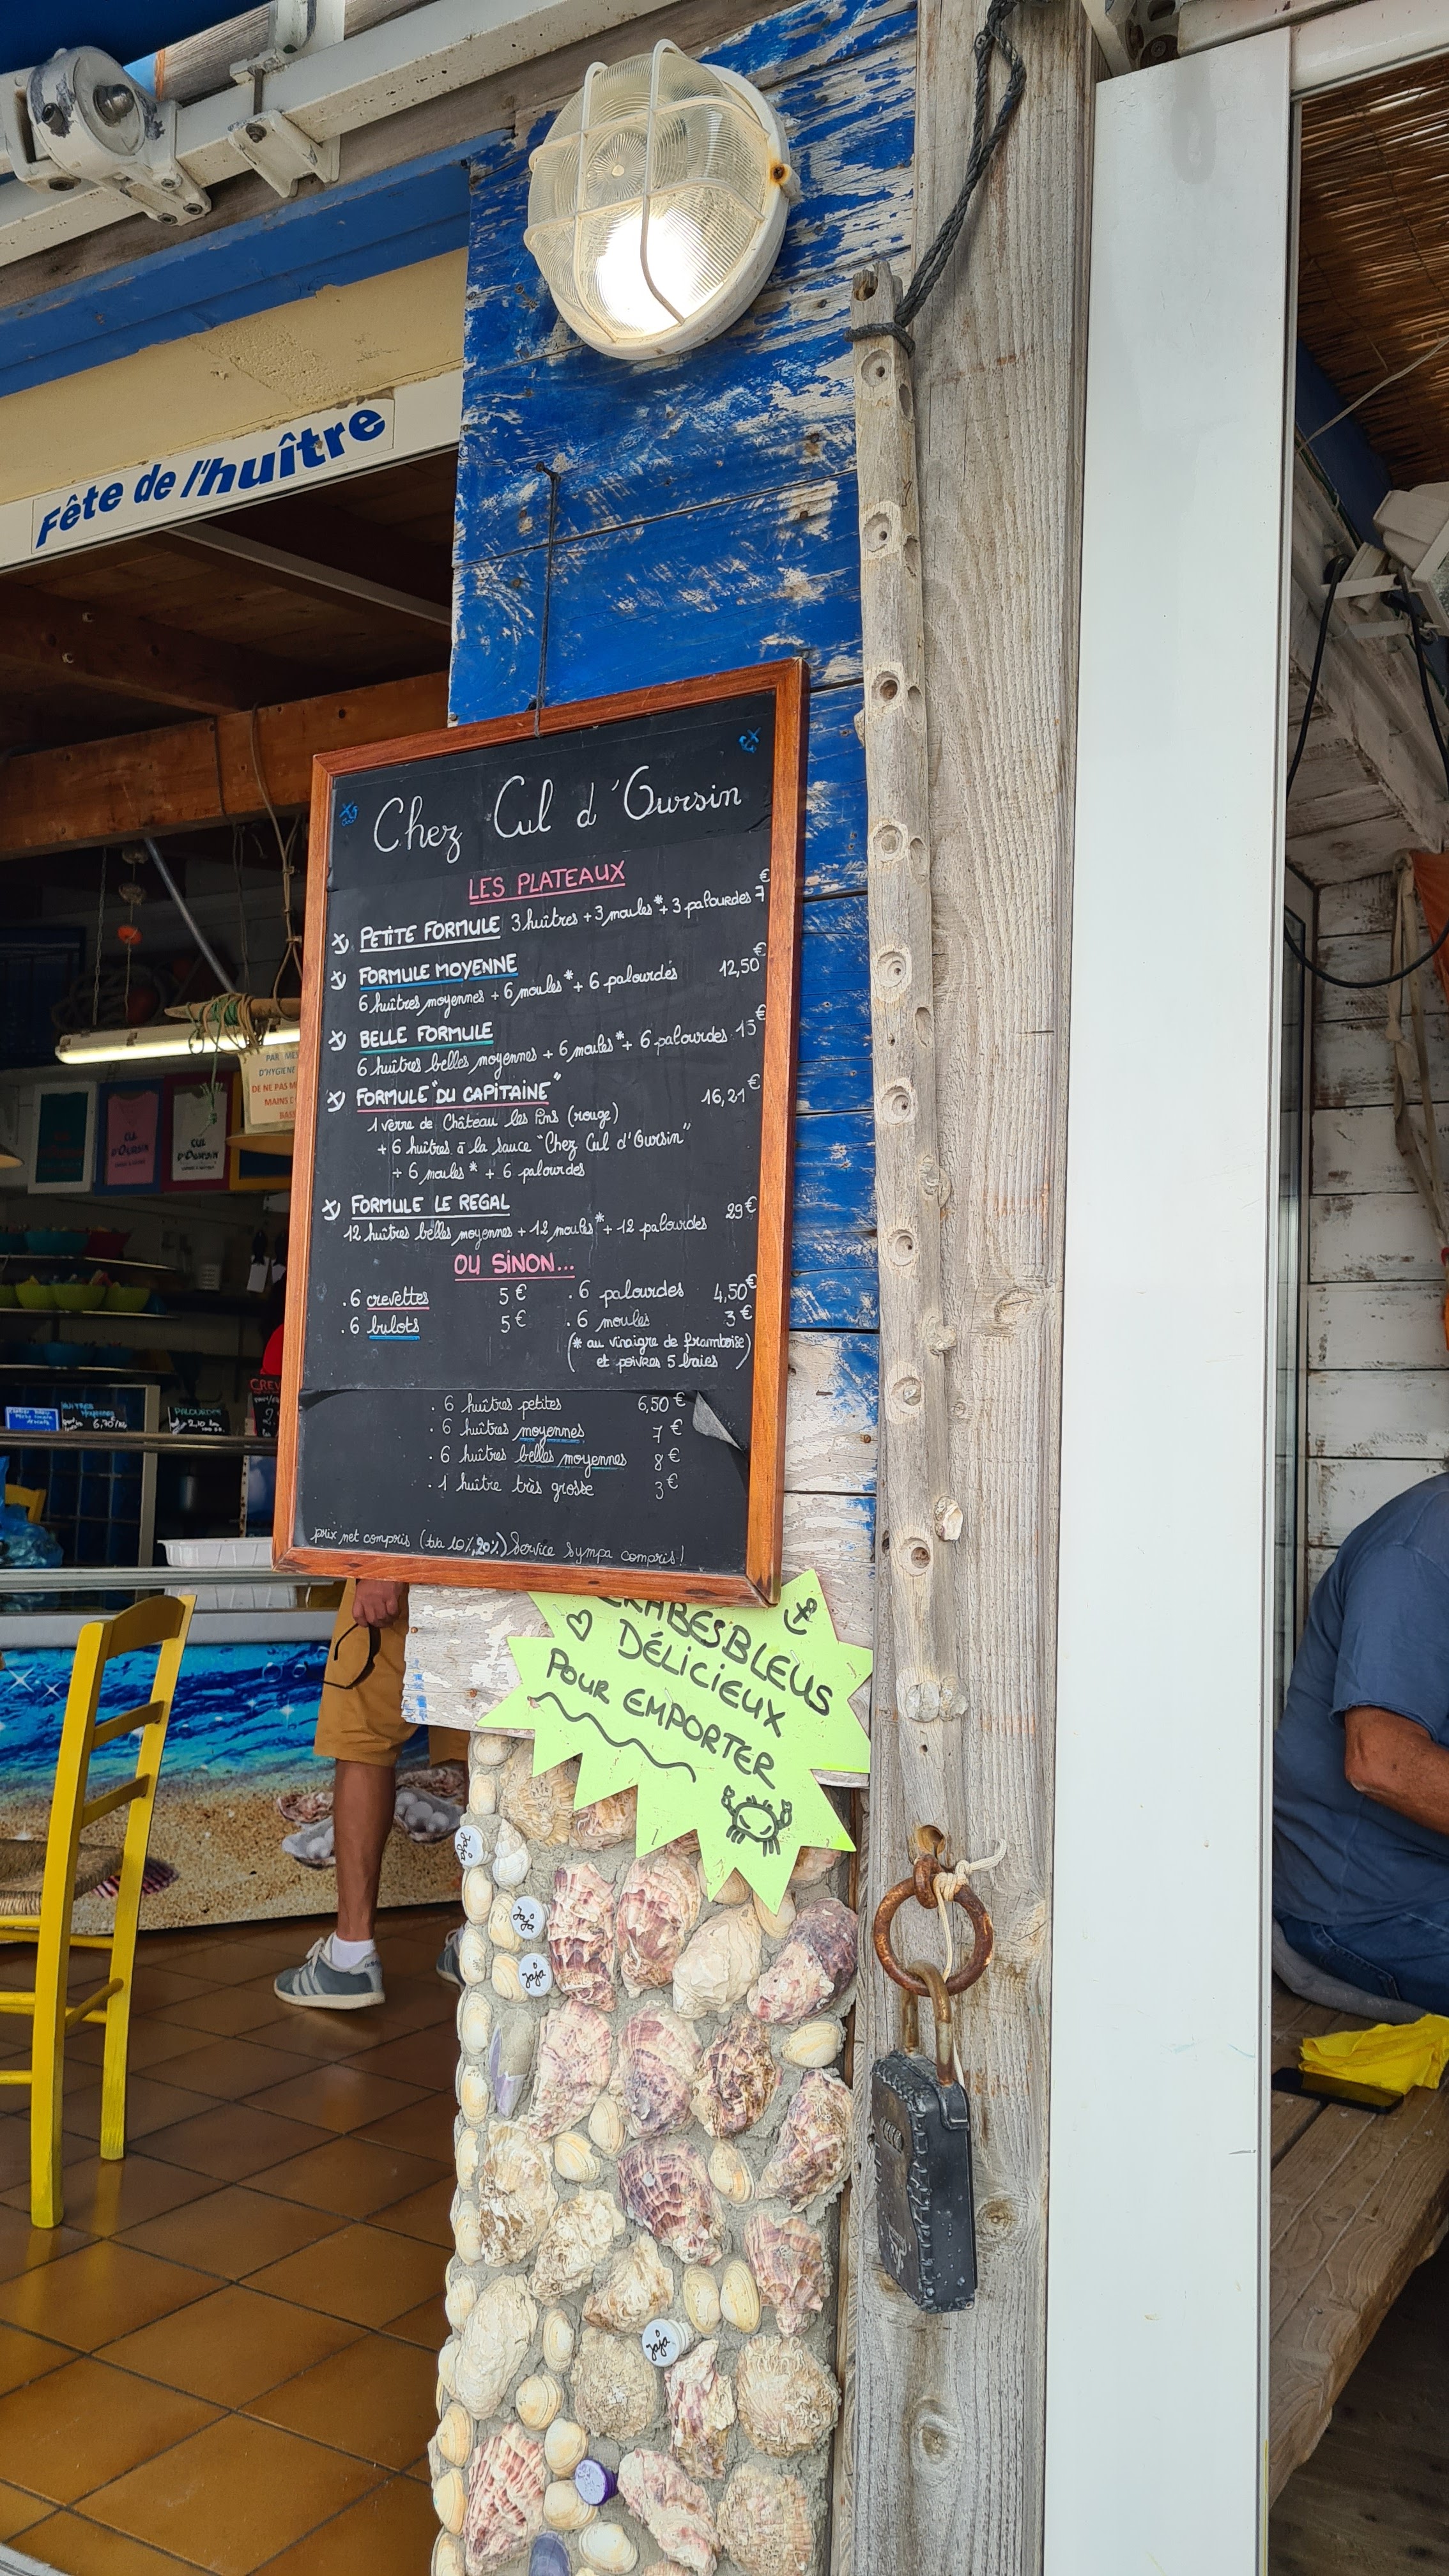 Fête de l'huître
Chez Cul d'Oursin
LES PLATEAUX
PETITE FORMULE 3 huîtres + 3 moules* + 3 palourdes 7€
FORMULE MOYENNE
6 huîtres moyennes + 6 moules* + 6 palourdes 12,50€
BELLE FORMULE
6 huîtres belles moyennes + 6 moules* + 6 palourdes 15€
FORMULE "DU CAPITAINE" 16,21€
1 verre de Château les Pins (rouge)
+ 6 huîtres à la sauce "Chez Cul d'Oursin"
+ 6 moules* + 6 palourdes
FORMULE LE REGAL
12 huîtres belles moyennes + 12 moules* + 12 palourdes 29€
OU SINON...
. 6 crevettes 5€ . 6 palourdes 4,50€
. 6 bulots 5€ . 6 moules 3€
(* au vinaigre de framboise
et poivres 5 baies)
. 6 huîtres petites 6,50€
. 6 huîtres moyennes 7€
. 6 huîtres belles moyennes 8€
. 1 huître très grosse 3€
prix net compris (tva 10%, 20%) Service Sympa compris!
CRABES BLEUS
DÉLICIEUX
POUR EMPORTER
PAR MES
D'HYGIENE
DE NE PAS M
MAINS D
BASS
CUL
D'OURSIN
CUL
D'OURSIN
PALOURDES
jaja
jaja
jaja
jaja